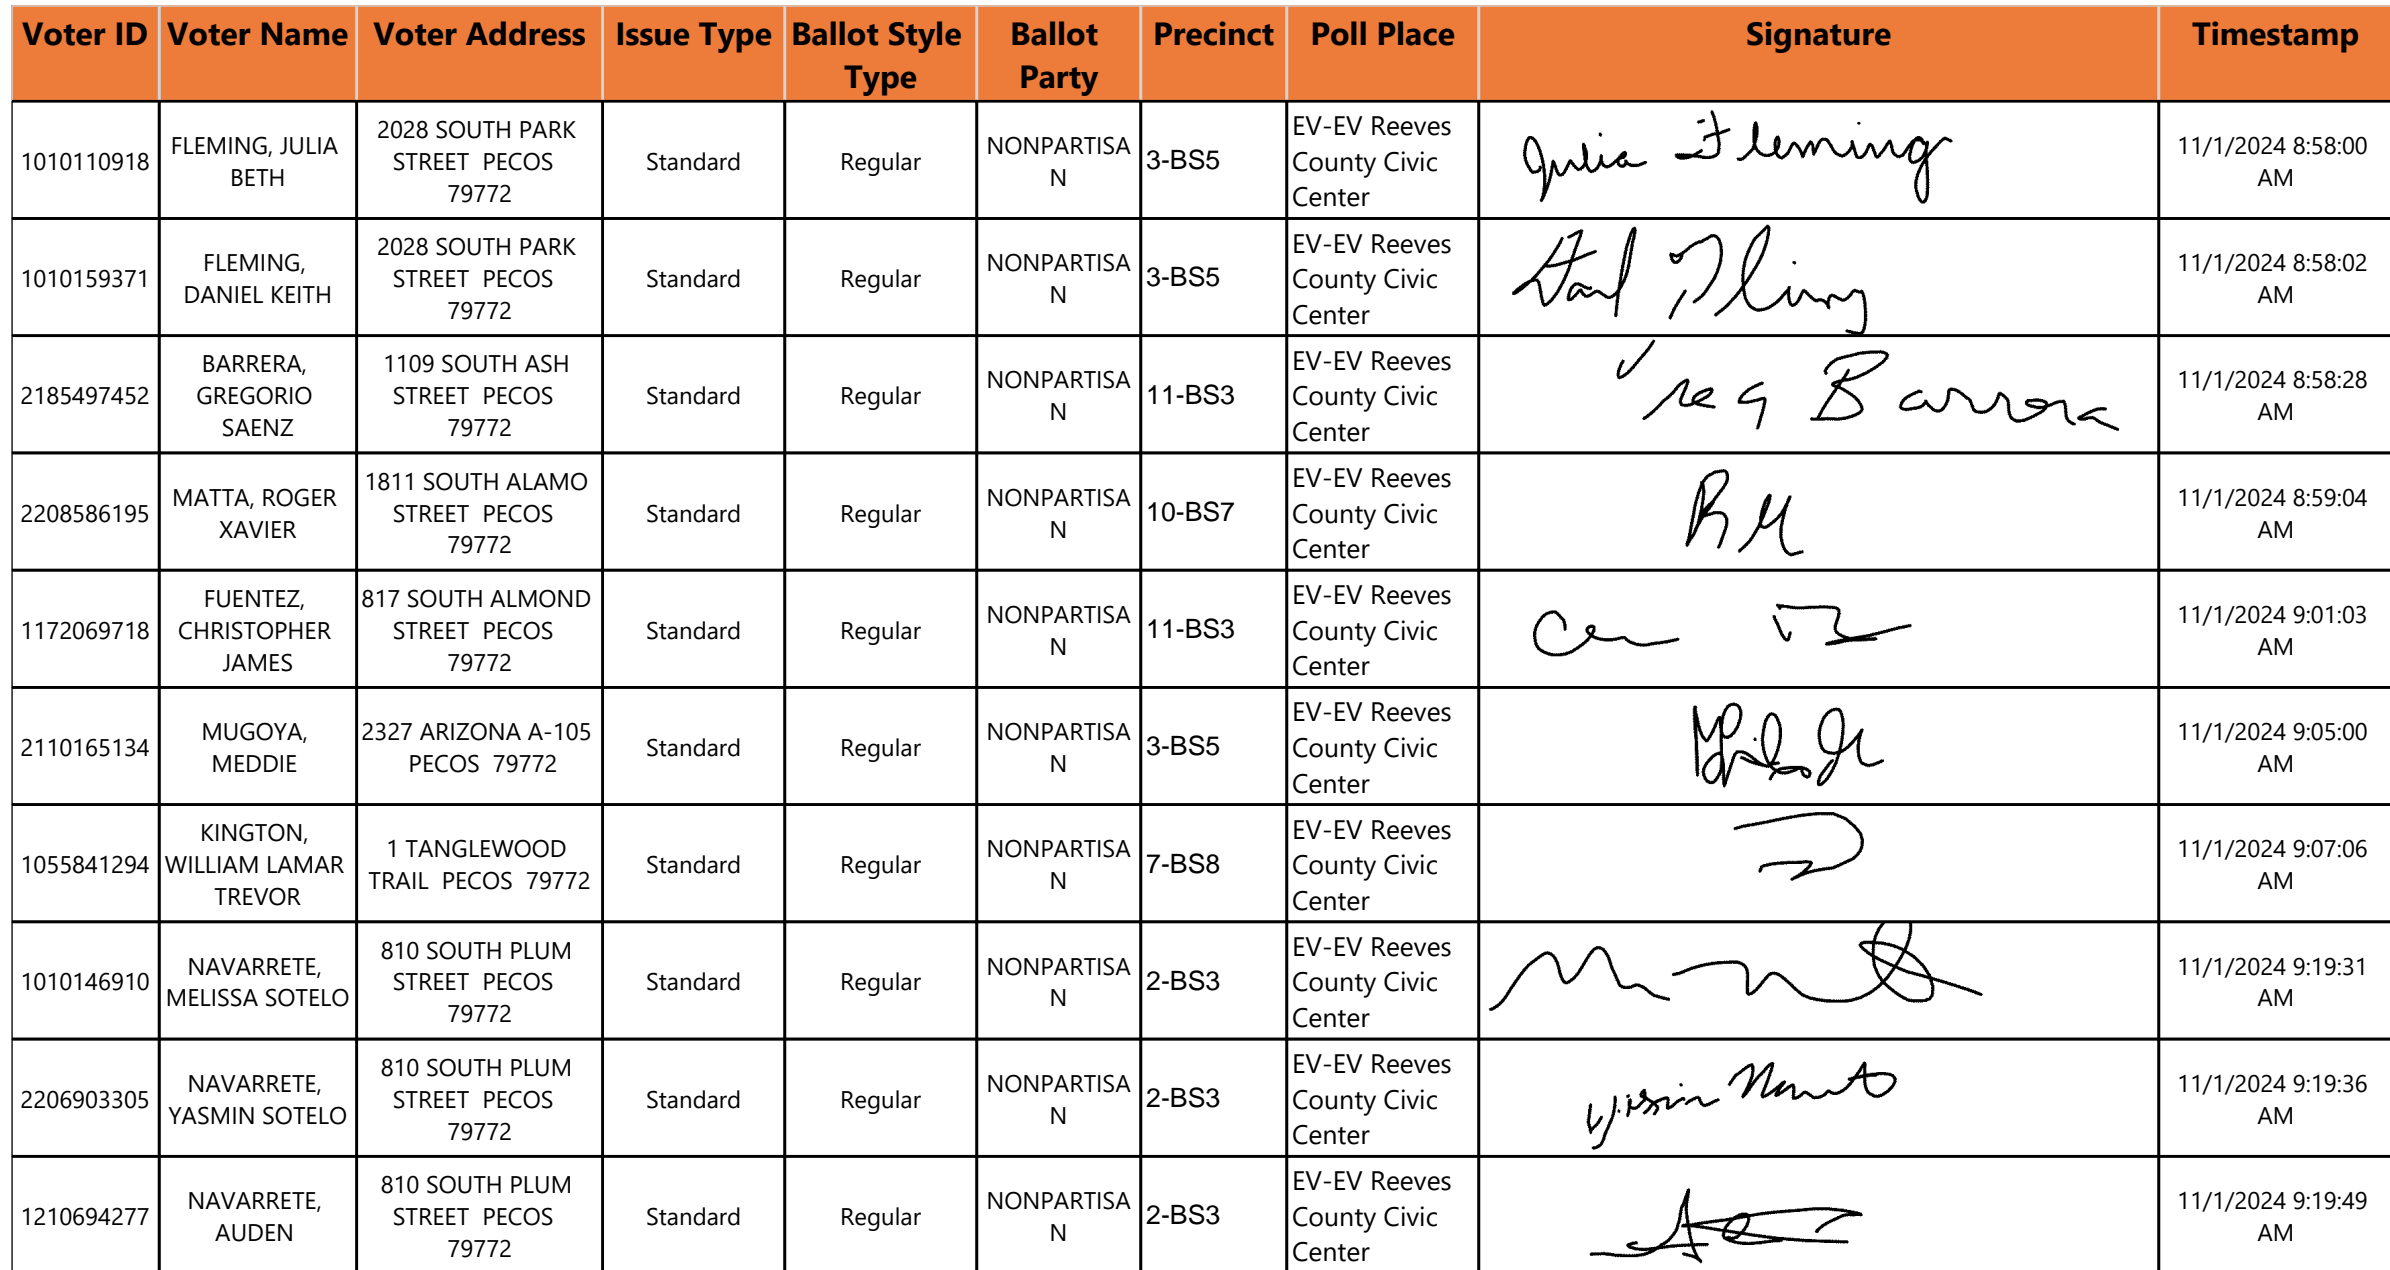 Voter ID Voter Name Voter Address Issue Type Ballot Style Type Ballot Party Precinct Poll Place Signature Timestamp
1010110918 FLEMING, JULIA BETH 2028 SOUTH PARK STREET PECOS 79772 Standard Regular NONPARTISAN 3-BS5 EV-EV Reeves County Civic Center Julia Fleming 11/1/2024 8:58:00 AM
1010159371 FLEMING, DANIEL KEITH 2028 SOUTH PARK STREET PECOS 79772 Standard Regular NONPARTISAN 3-BS5 EV-EV Reeves County Civic Center 11/1/2024 8:58:02 AM
2185497452 BARRERA, GREGORIO SAENZ 1109 SOUTH ASH STREET PECOS 79772 Standard Regular NONPARTISAN 11-BS3 EV-EV Reeves County Civic Center Barrera 11/1/2024 8:58:28 AM
2208586195 MATTA, ROGER XAVIER 1811 SOUTH ALAMO STREET PECOS 79772 Standard Regular NONPARTISAN 10-BS7 EV-EV Reeves County Civic Center RM 11/1/2024 8:59:04 AM
1172069718 FUENTEZ, CHRISTOPHER JAMES 817 SOUTH ALMOND STREET PECOS 79772 Standard Regular NONPARTISAN 11-BS3 EV-EV Reeves County Civic Center 11/1/2024 9:01:03 AM
2110165134 MUGOYA, MEDDIE 2327 ARIZONA A-105 PECOS 79772 Standard Regular NONPARTISAN 3-BS5 EV-EV Reeves County Civic Center 11/1/2024 9:05:00 AM
1055841294 KINGTON, WILLIAM LAMAR TREVOR 1 TANGLEWOOD TRAIL PECOS 79772 Standard Regular NONPARTISAN 7-BS8 EV-EV Reeves County Civic Center 11/1/2024 9:07:06 AM
1010146910 NAVARRETE, MELISSA SOTELO 810 SOUTH PLUM STREET PECOS 79772 Standard Regular NONPARTISAN 2-BS3 EV-EV Reeves County Civic Center 11/1/2024 9:19:31 AM
2206903305 NAVARRETE, YASMIN SOTELO 810 SOUTH PLUM STREET PECOS 79772 Standard Regular NONPARTISAN 2-BS3 EV-EV Reeves County Civic Center 11/1/2024 9:19:36 AM
1210694277 NAVARRETE, AUDEN 810 SOUTH PLUM STREET PECOS 79772 Standard Regular NONPARTISAN 2-BS3 EV-EV Reeves County Civic Center 11/1/2024 9:19:49 AM